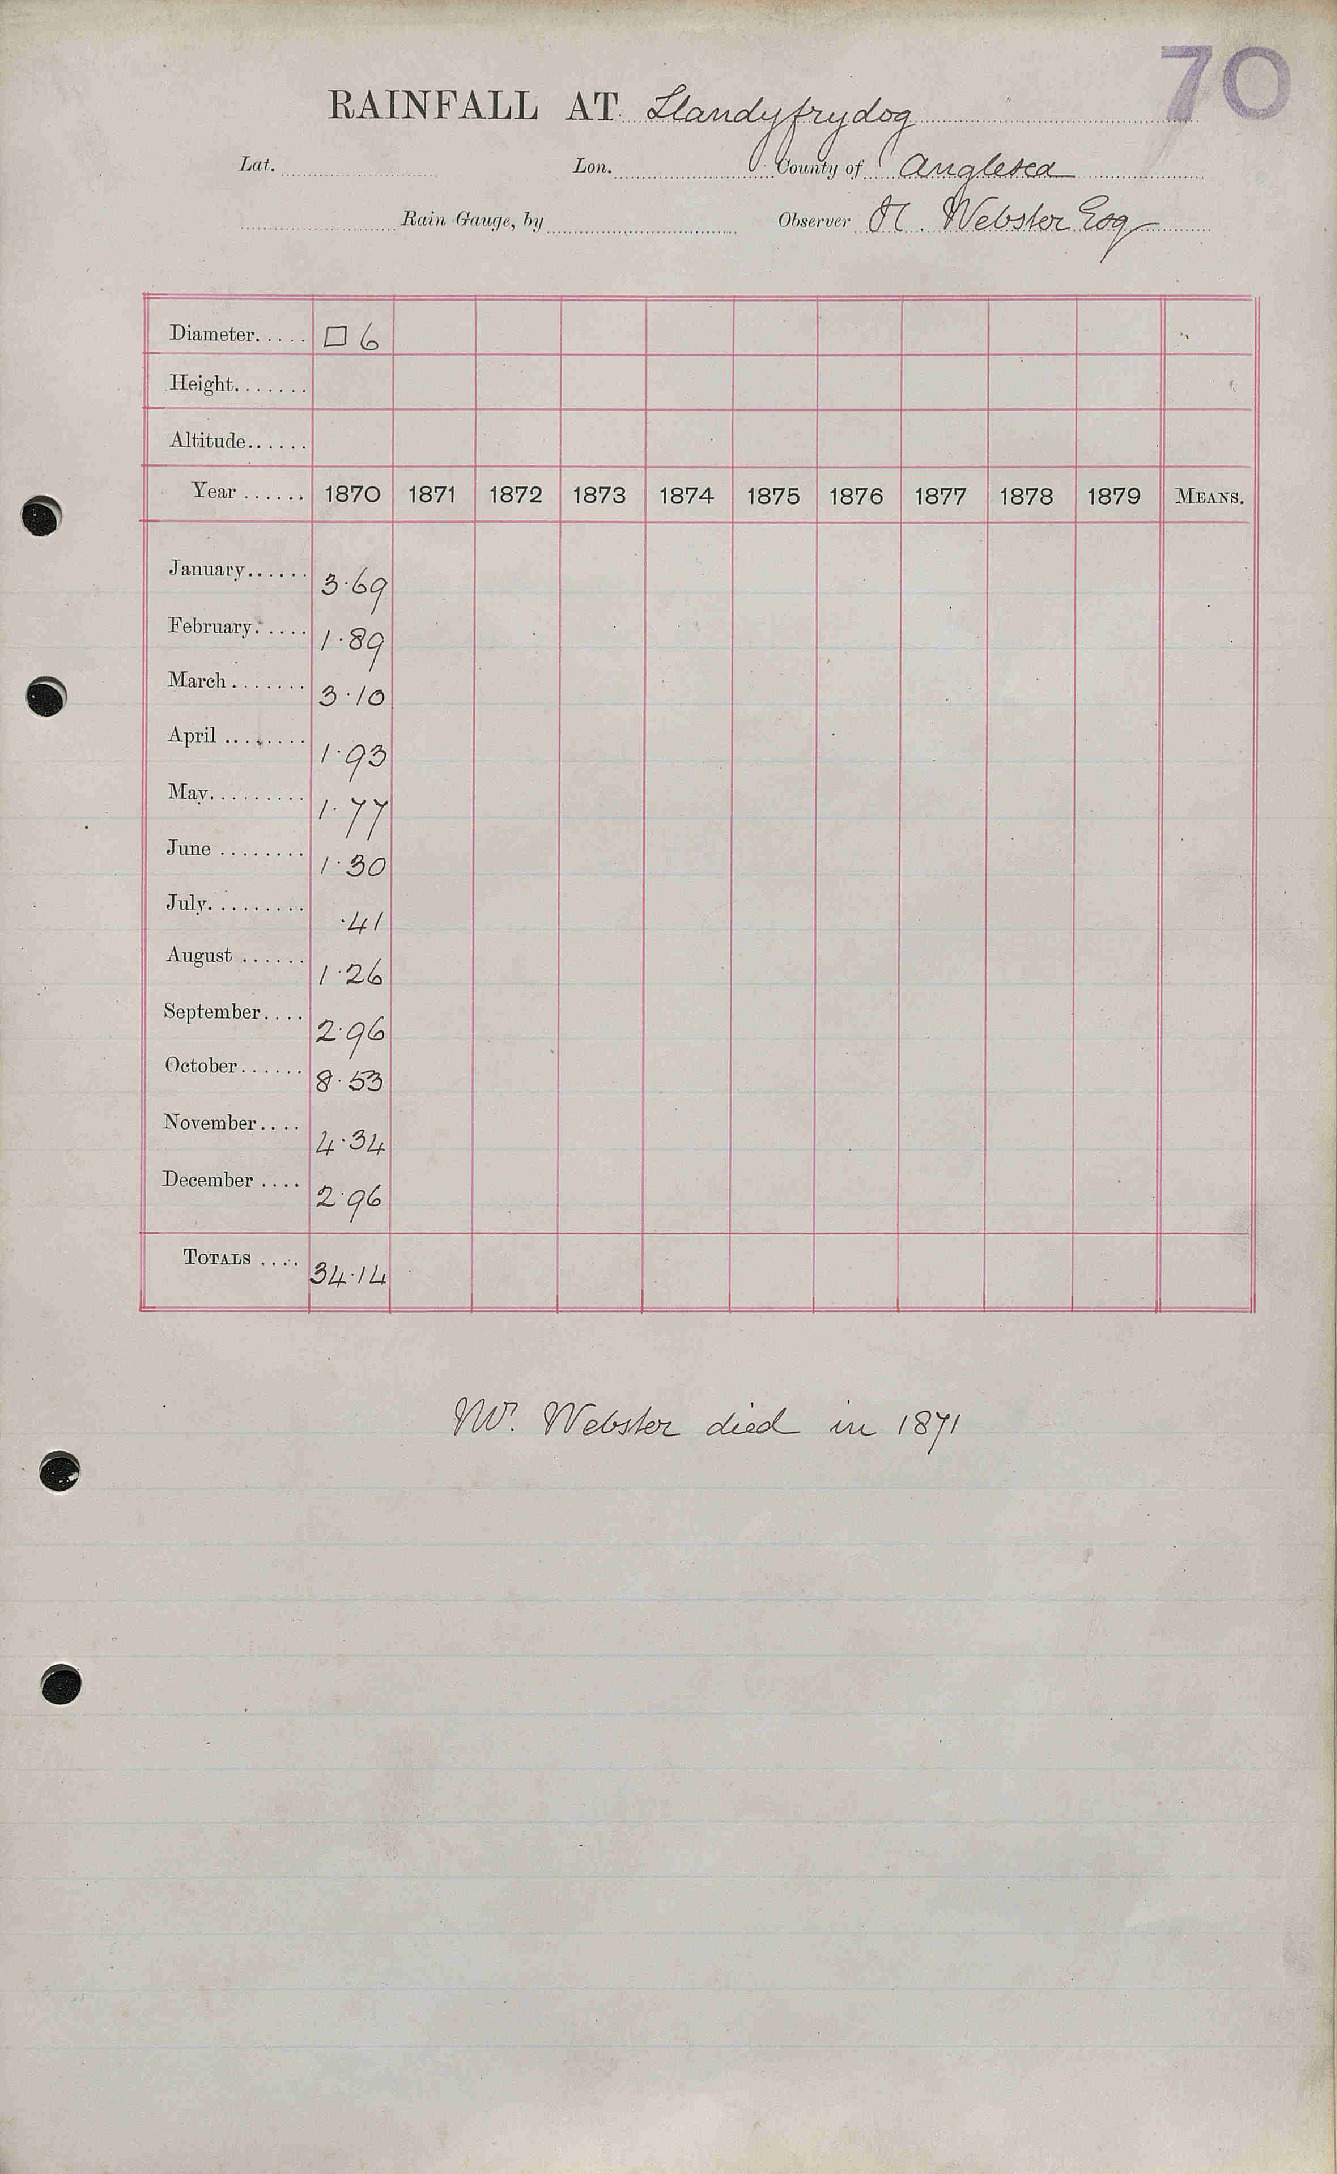 70
RAINFALL AT Llandyfrydog
Lat. Lon. County of Anglesea
Rain Gauge, by Observer H. Webster Esq
Diameter..... □ 6
Height.......
Altitude......
Year ...... 1870 1871 1872 1873 1874 1875 1876 1877 1878 1879 MEANS.
January...... 3.69
February...... 1.89
March ....... 3.10
April ........ 1.93
May......... 1.77
June ........ 1.30
July......... .41
August ...... 1.26
September.... 2.96
October...... 8.53
November.... 4.34
December .... 2.96
TOTALS .... 34.14
Mr. Webster died in 1871